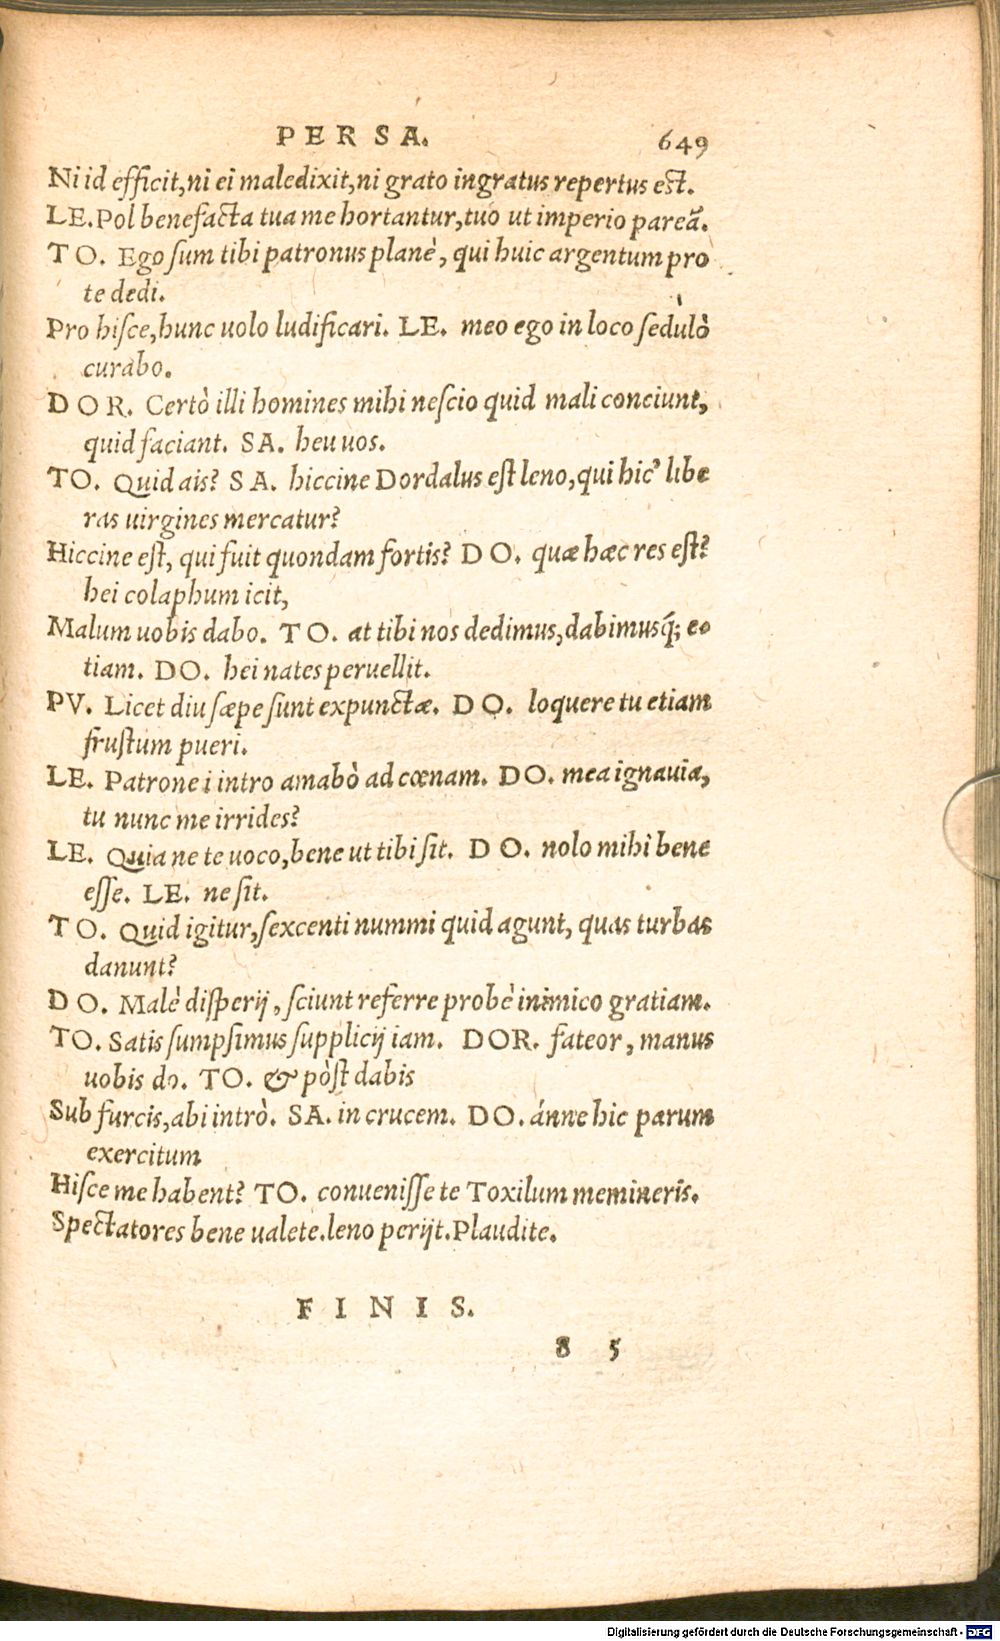 PERSA. 649
Ni id efficit,ni ei maledixit,ni grato ingratus repertus est.
LE.Pol benefacta tua me hortantur,tuo ut imperio pareã.
TO. Ego sum tibi patronus planè, qui huic argentum pro
te dedi.
Pro hisce,hunc uolo ludificari. LE. meo ego in loco sedulò
curabo.
DOR. Certò illi homines mihi nescio quid mali conciunt,
quid faciant. SA. heu uos.
TO. Quid ais? SA. hiccine Dordalus est leno,qui hic' libe
ras uirgines mercatur?
Hiccine est, qui fuit quondam fortis? DO. quæ hæc res est?
hei colaphum icit,
Malum uobis dabo. TO. at tibi nos dedimus,dabimusq́; eo
tiam. DO. hei nates peruellit.
PV. Licet diu sæpe sunt expunctæ. DO. loquere tu etiam
frustum pueri.
LE. Patrone i intro amabò ad cœnam. DO. mea ignauia,
tu nunc me irrides?
LE. Quia ne te uoco,bene ut tibi sit. DO. nolo mihi bene
esse. LE. ne sit.
TO. Quid igitur,sexcenti nummi quid agunt, quas turbas
danunt?
DO. Malè disperij, sciunt referre probè inimico gratiam.
TO. Satis sumpsimus supplicij iam. DOR. fateor, manus
uobis do. TO. & pòst dabis
Sub furcis,abi intrò. SA. in crucem. DO. ánne hic parum
exercitum
Hisce me habent? TO. conuenisse te Toxilum memineris.
Spectatores bene ualete.leno perijt.Plaudite.
FINIS.
8 5
Digitalisierung gefördert durch die Deutsche Forschungsgemeinschaft - DFG